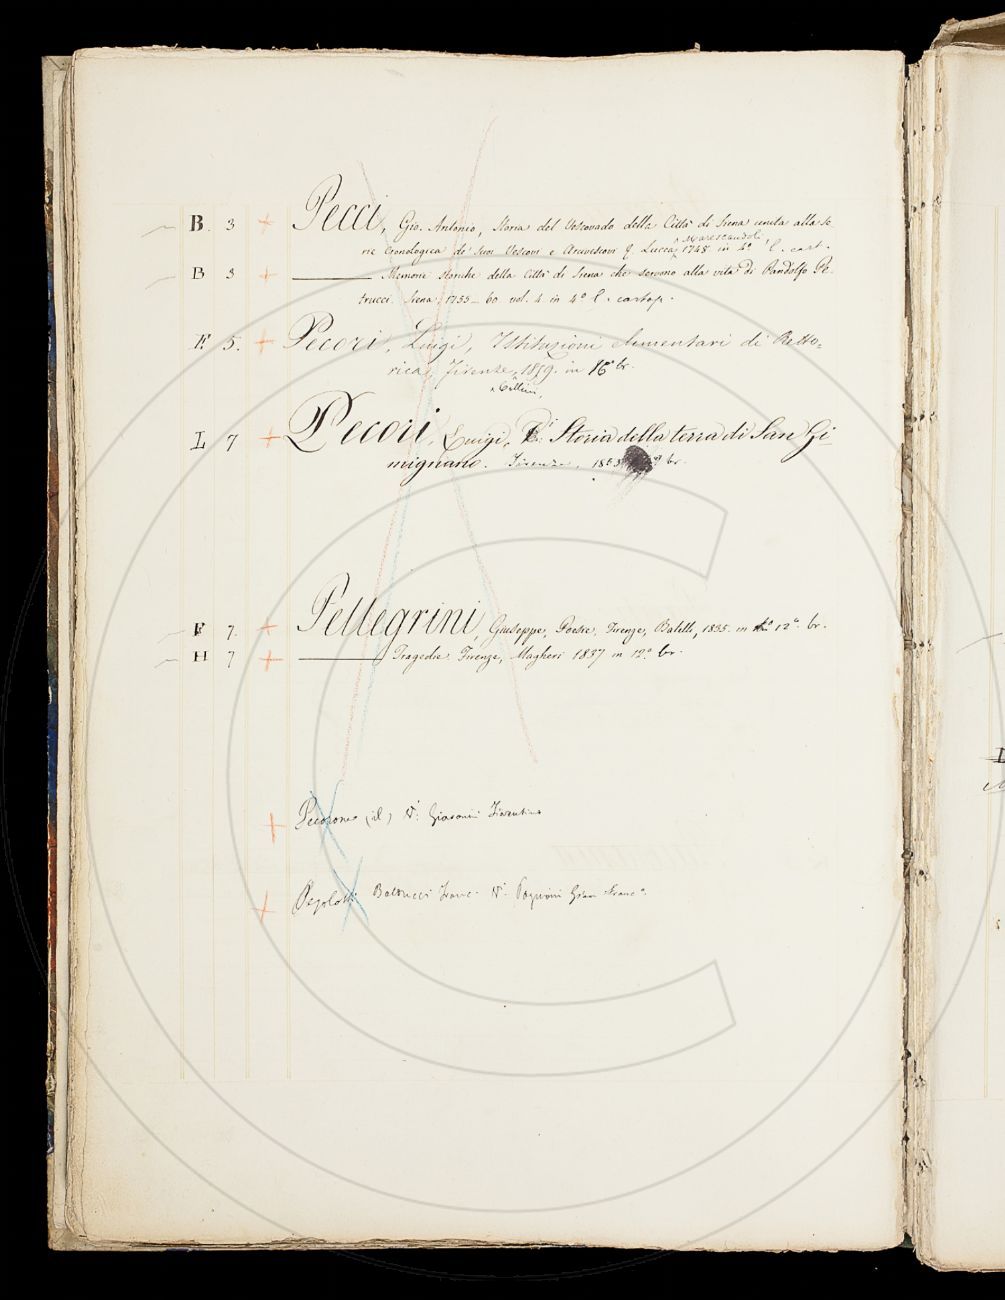 B. 3 + Pecci, Gio. Antonio, Storia del Vescovado della Città di Siena unita alla Se
rie Cronologica de' suoi Vescovi e Arcivescovi &. Lucca, Marescandoli, 1748. in 4º l. cart.
B 3 + Memorie storiche della Città di Siena che servono alla vita di Pandolfo Pe
trucci. Siena, 1755-60 vol. 4 in 4º l. cartap.
F. 5. + Pecori, Luigi, Istituzioni elementari di Retto=
rica, Firenze, Cellini, 1859. in 16º br.
L 7 + Pecori, Luigi, Storia della terra di San Gi
mignano. Firenze, 1853 br.
F 7. + Pellegrini, Giuseppe, Poesie, Firenze, Batelli, 1835. in 12º. br.
H 7 + Tragedie. Firenze, Magheri 1837 in 12º. br.
+ Pecorone (il) V. Giovanni Fiorentino
+ Pegolotti Balducci Franc. V. Pagnini Gian Franc.º